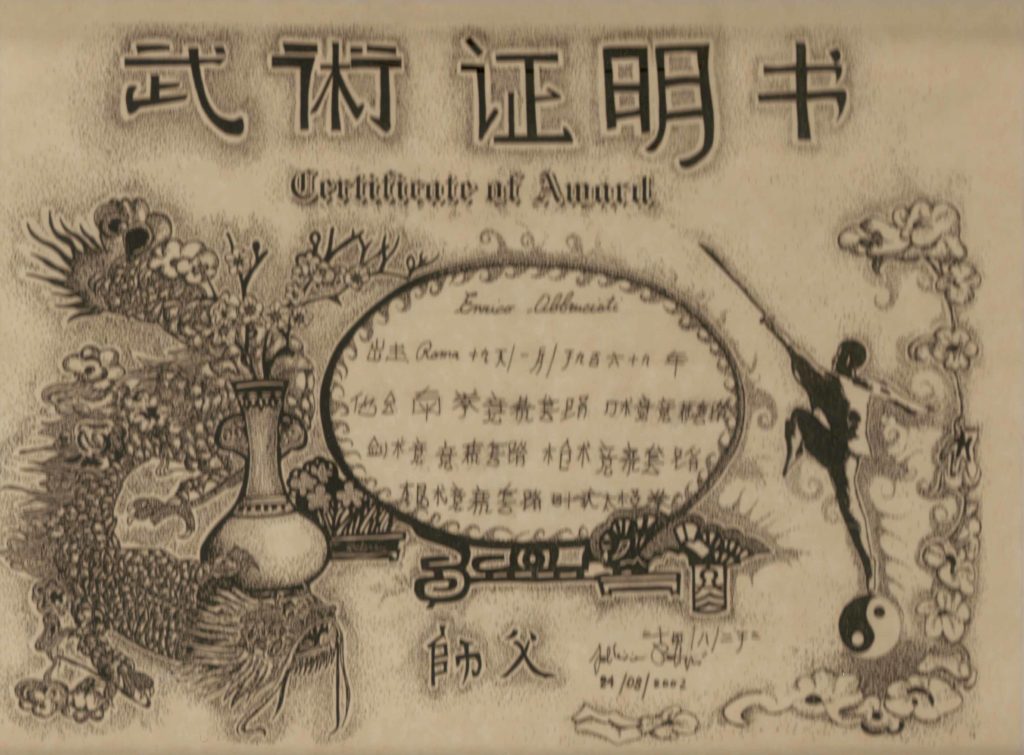 武術 证明书
Certificate of Award
Enrico Abbruciati
出生 Roma 十九天/一月/于九百六十九 年
南拳竞赛套路 刀术竞赛套路
剑术竞赛套路 枪术竞赛套路
棍术竞赛套路 太极拳
師父
24/08/2002